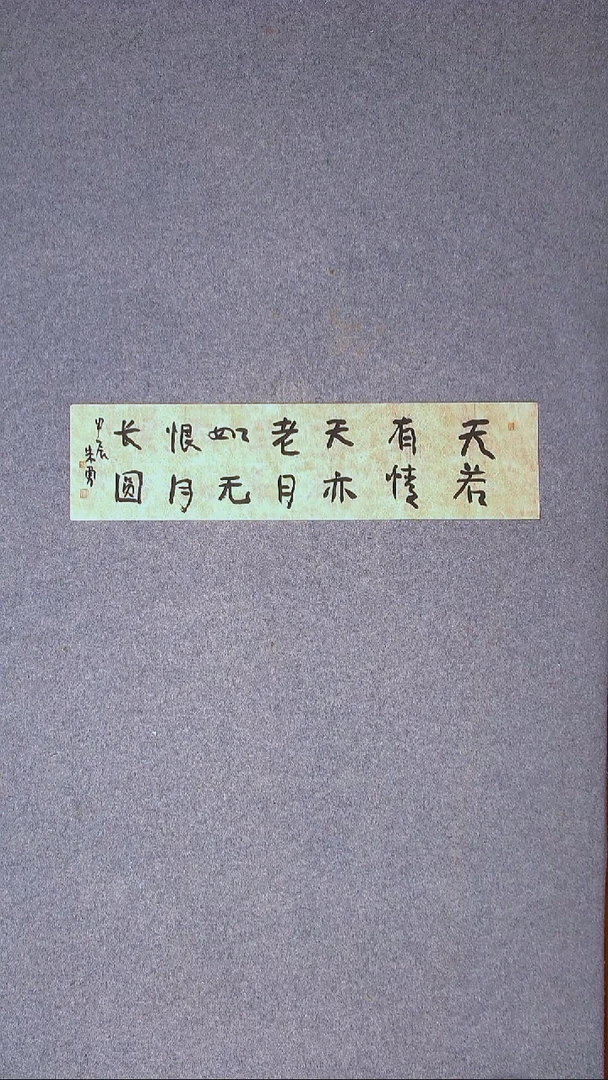 天若
有情
天亦
老月
如无
恨月
长圆
甲辰
朱勇